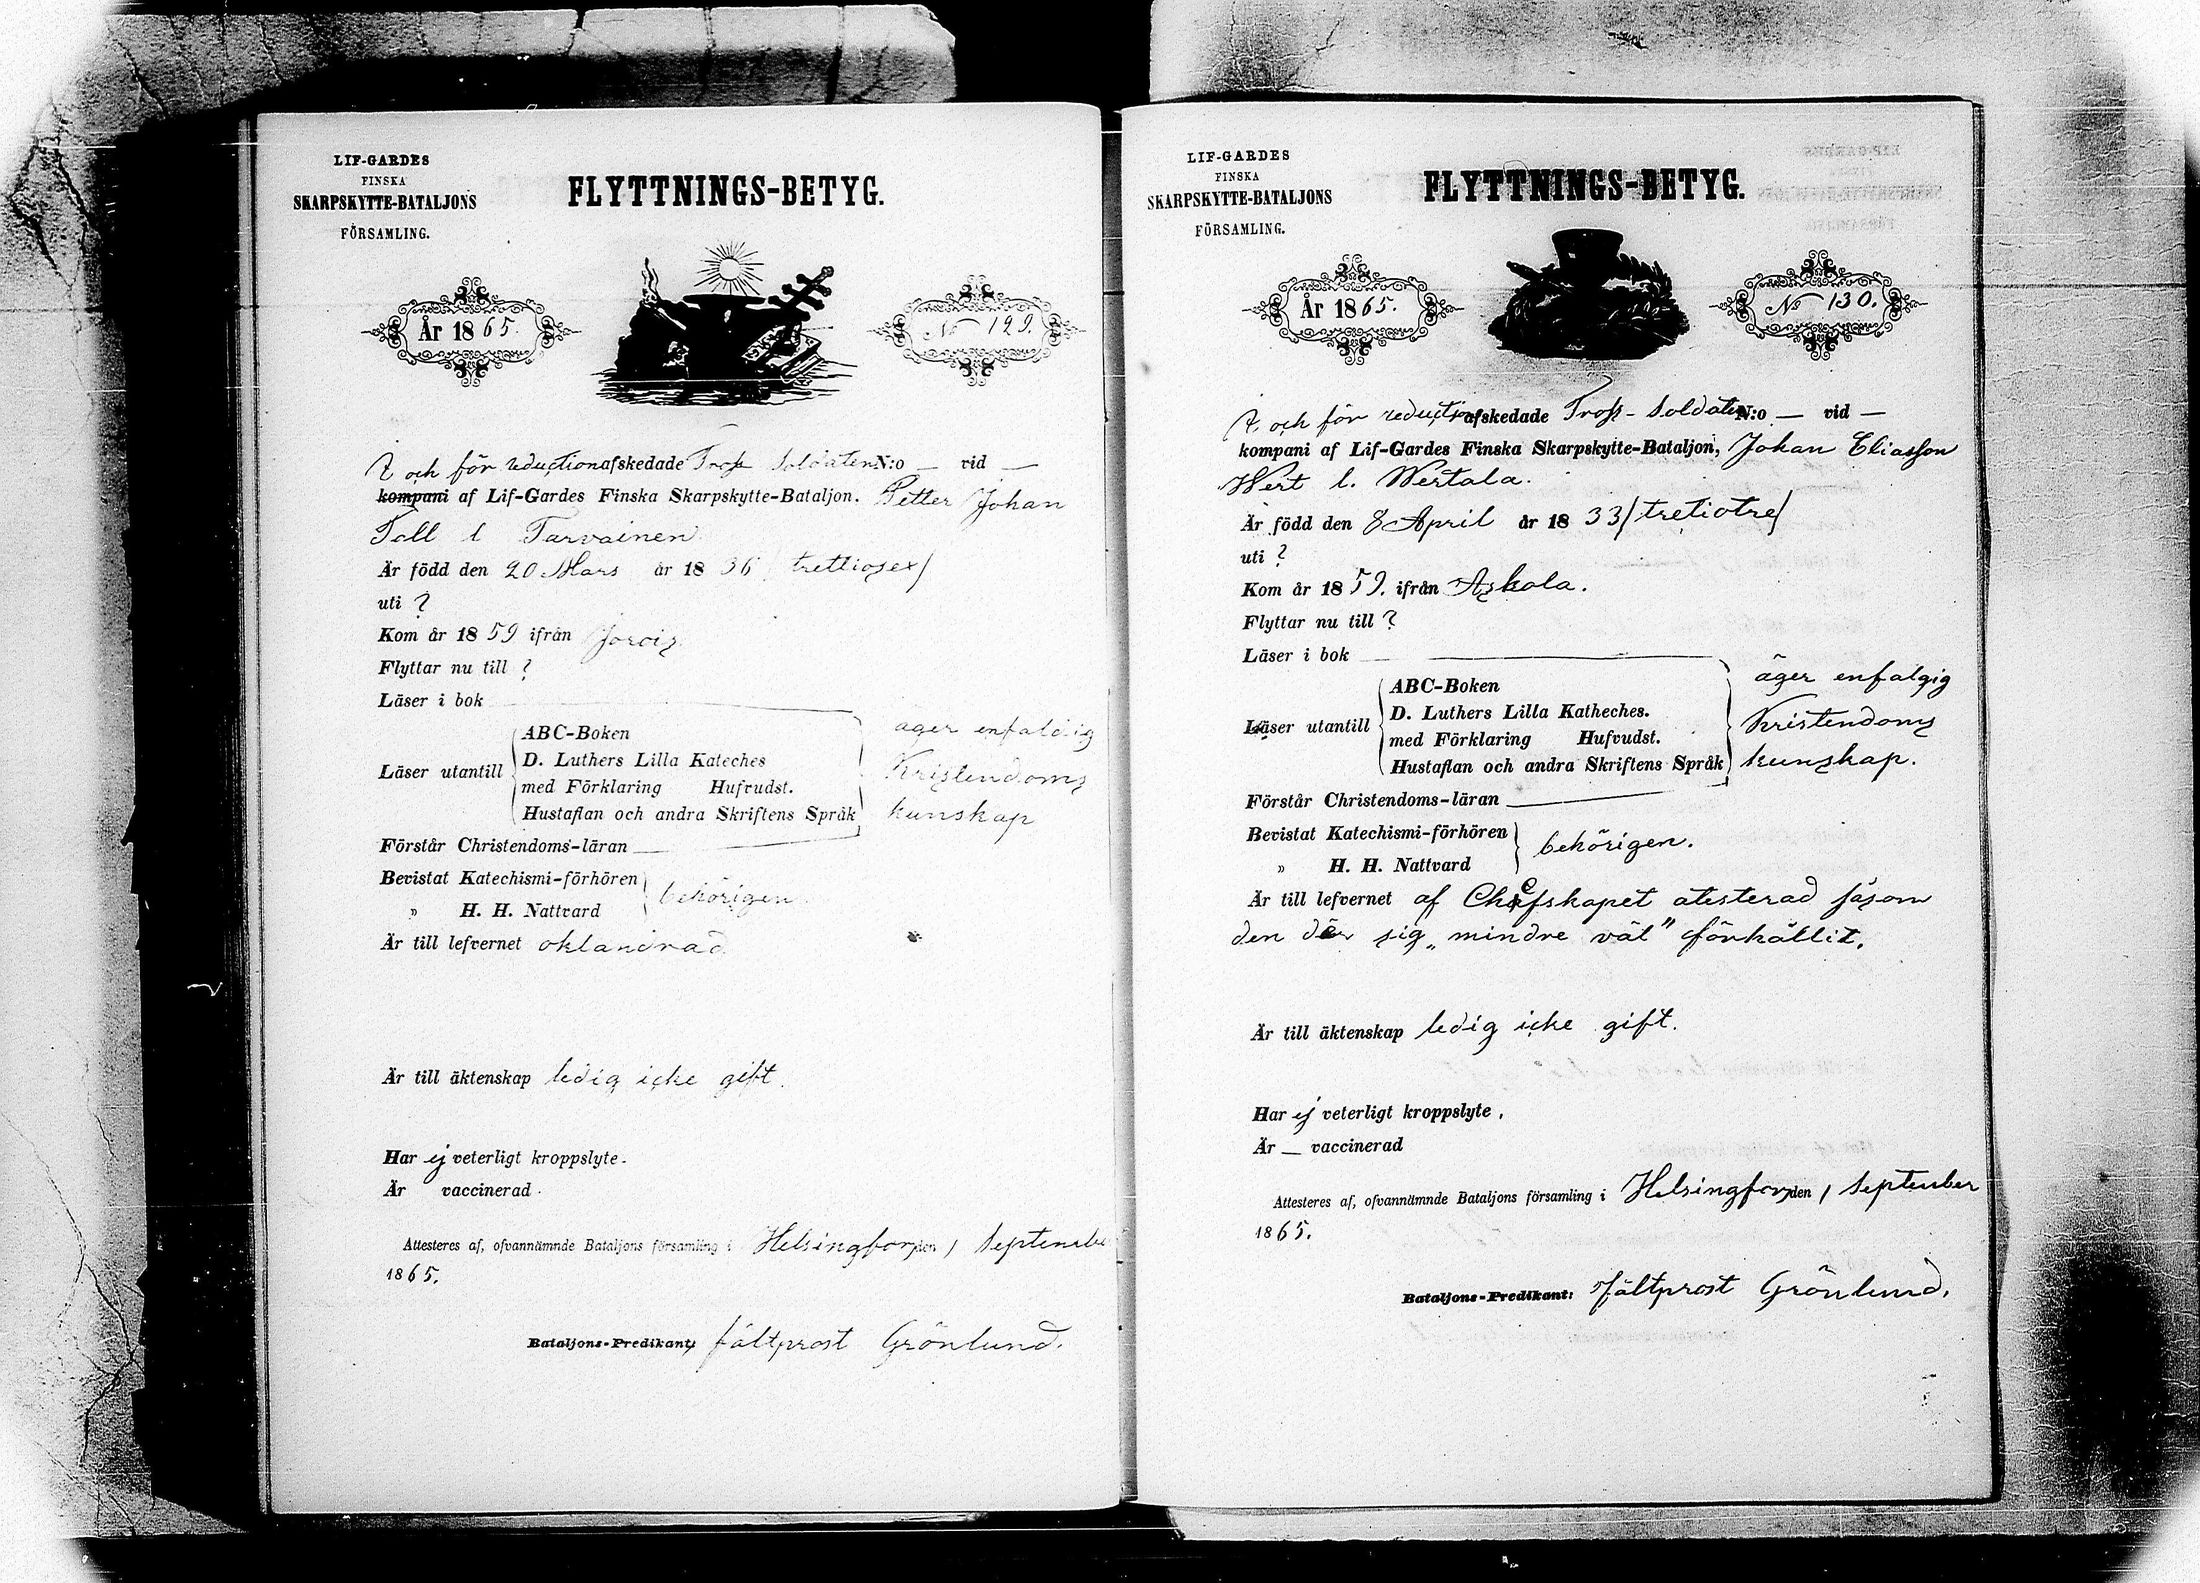 LIF-GARDES
FINSKA
SKARPSKYTTE-BATALJONS
FÖRSAMLING.
FLYTTNINGS-BETYG.
År 1865.
No 129.
och för reduction afskedade Tross Soldaten N:o — vid —
kompani af Lif-Gardes Finska Skarpskytte-Bataljon. Petter Johan
Toll l Tarvainen
Är född den 20 Mars år 1836 / trettiosex/
uti ?
Kom år 1859 ifrån Jorois
Flyttar nu till ?
Läser i bok
Läser utantill
ABC-Boken
D. Luthers Lilla Kateches
med Förklaring Hufvudst.
Hustaflan och andra Skriftens Språk
äger enfaldig
Kristendoms
kunskap
Förstår Christendoms-läran
Bevistat Katechismi-förhören
„ H. H. Nattvard
behörigen.
Är till lefvernet oklandrad
Är till äktenskap ledig icke gift.
Har ej veterligt kroppslyte.
Är vaccinerad.
Attesteres af, ofvannämnde Bataljons församling i Helsingfors den 1 September
1865.
Bataljons-Predikant; fältprost Grönlund.
LIF-GARDES
FINSKA
SKARPSKYTTE-BATALJONS
FÖRSAMLING.
FLYTTNINGS-BETYG.
År 1865.
No 130.
och för reduction afskedade Tross-Soldaten N:o — vid —
kompani af Lif-Gardes Finska Skarpskytte-Bataljon, Johan Eliasson
Wert l. Wertala.
Är född den 8 April år 1833 /tretiotre/
uti ?
Kom år 1859. ifrån Askola.
Flyttar nu till ?
Läser i bok
Läser utantill
ABC-Boken
D. Luthers Lilla Katheches.
med Förklaring Hufvudst.
Hustaflan och andra Skriftens Språk
äger enfalgig
Kristendoms
kunskap.
Förstår Christendoms-läran
Bevistat Katechismi-förhören
„ H. H. Nattvard
behörigen.
Är till lefvernet af Chefskapet atesterad såsom
den der sig „mindre väl" förhållit.
Är till äktenskap ledig icke gift.
Har ej veterligt kroppslyte.
Är — vaccinerad
Attesteres af, ofvannämnde Bataljons församling i Helsingfors den 1 September
1865.
Bataljons-Predikant: Fältprost Grönlund.